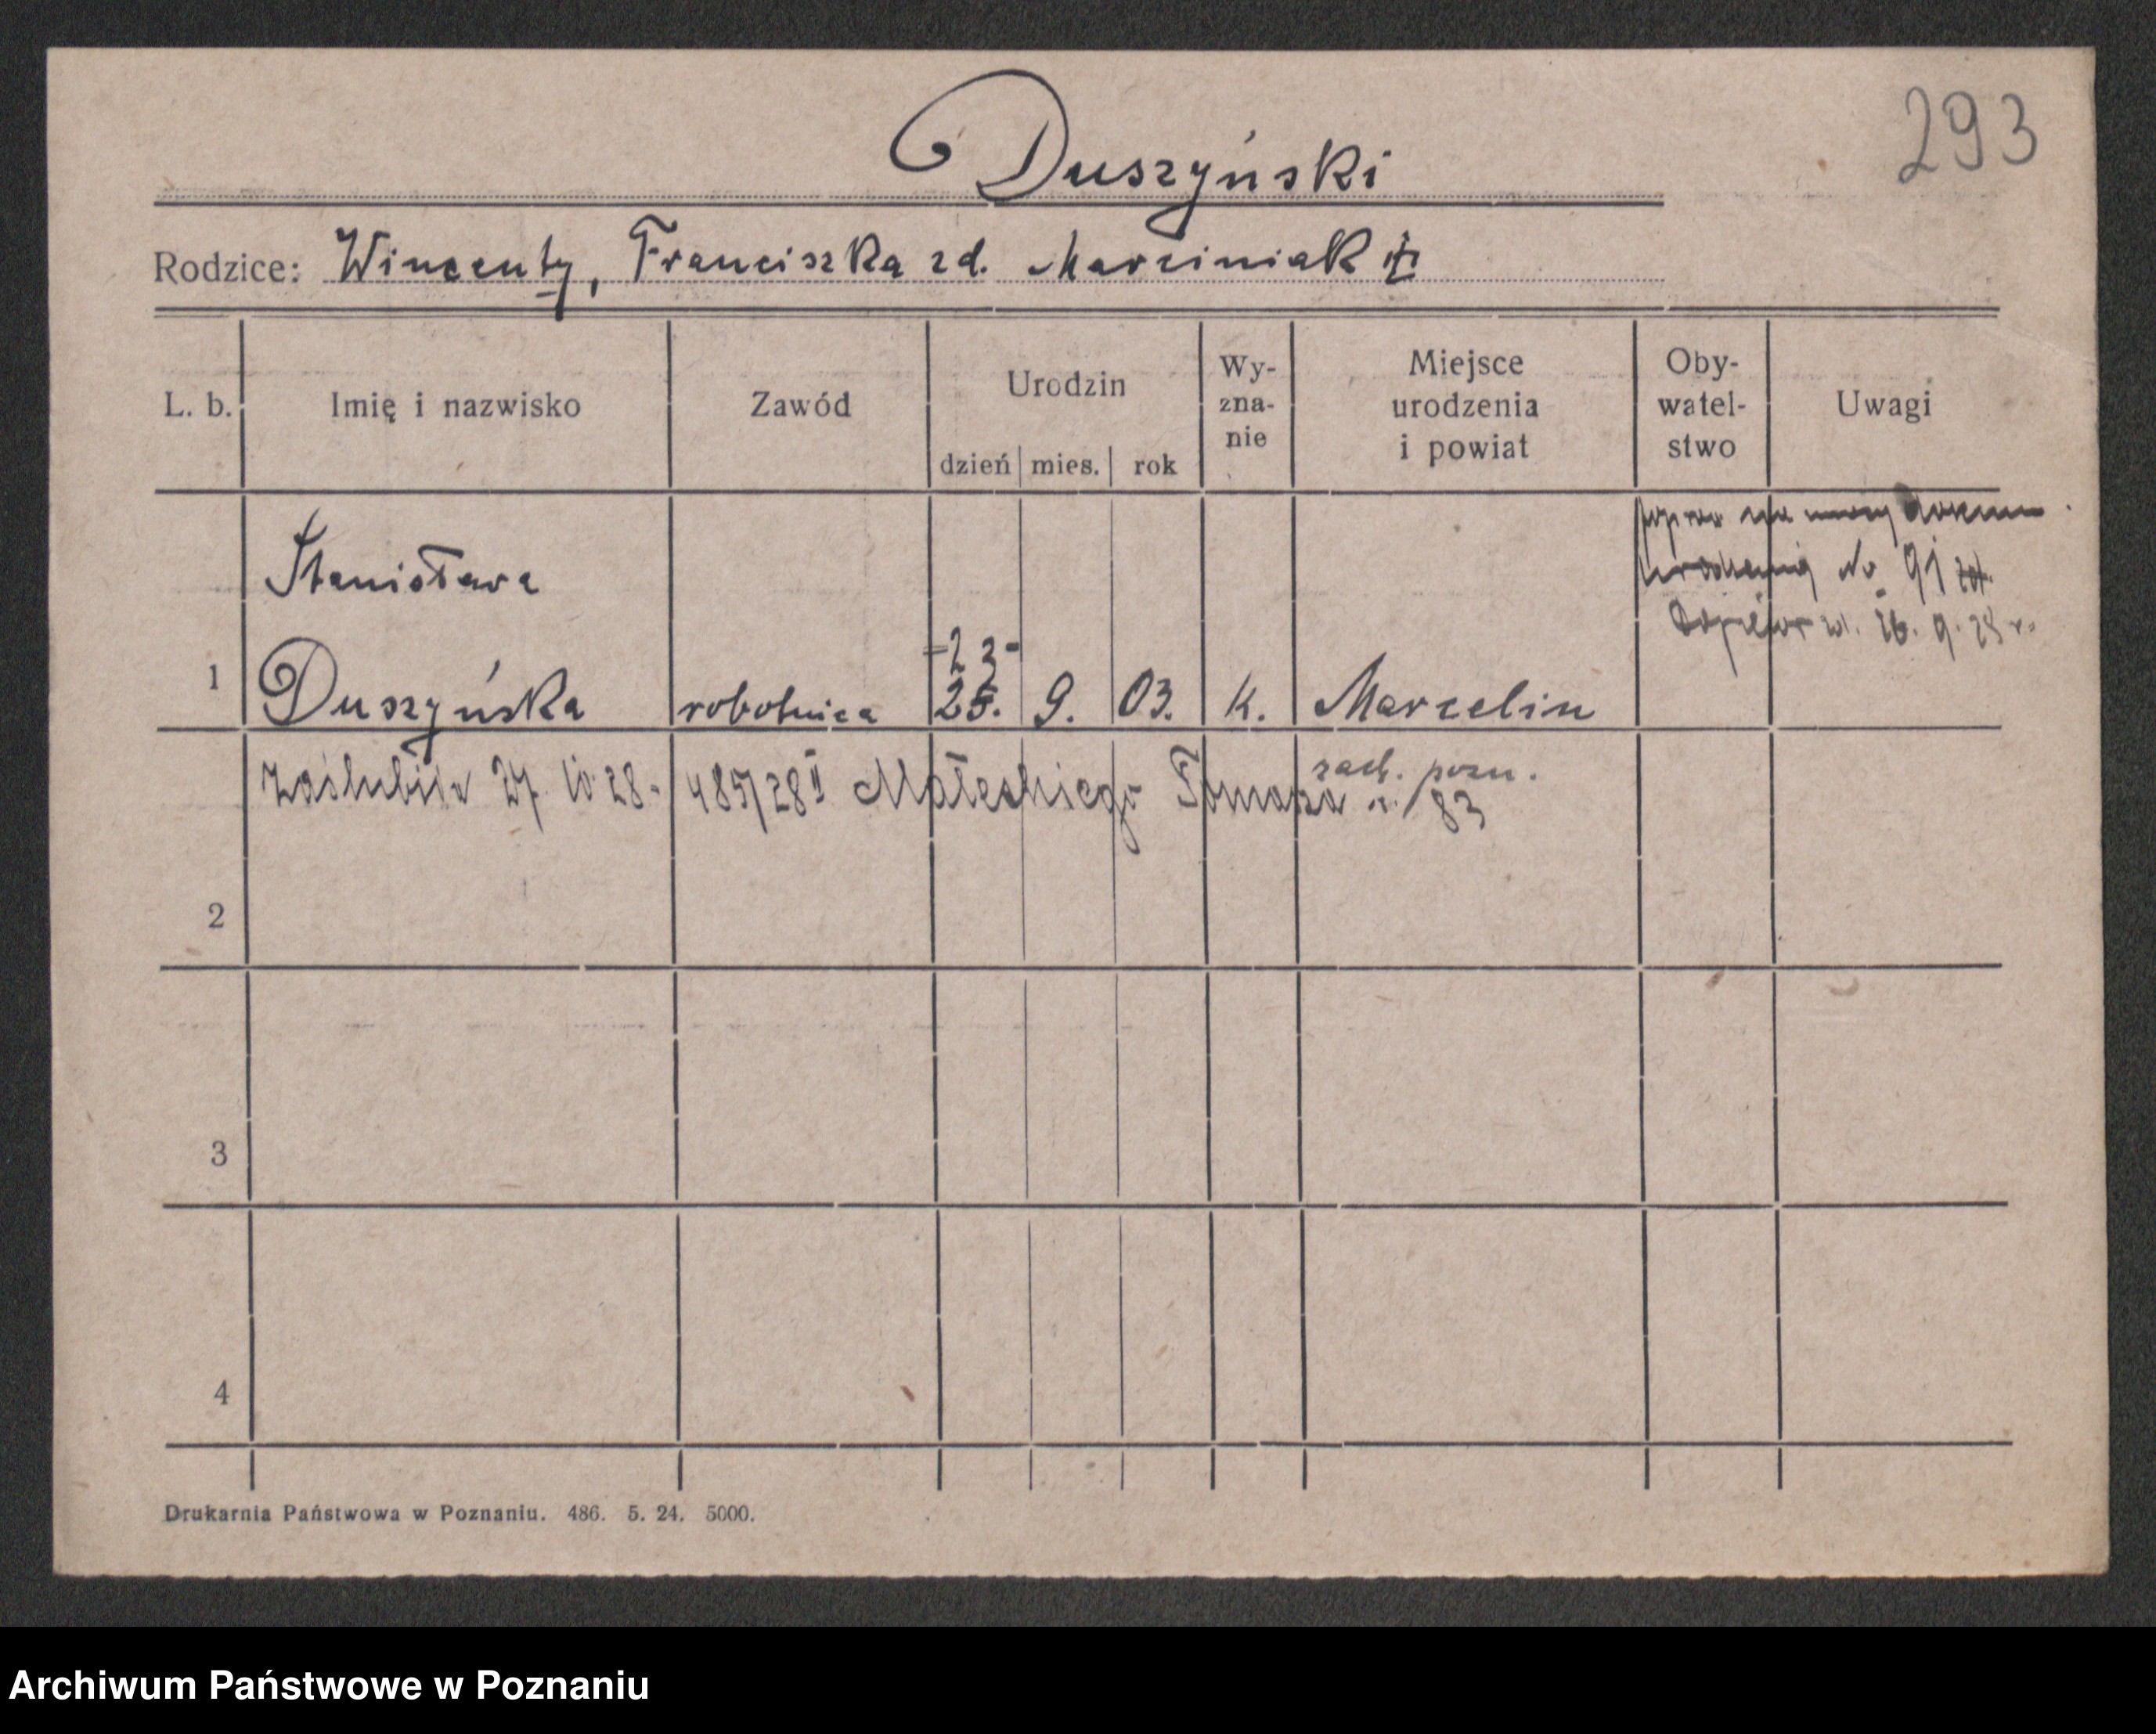 293
Duszyński
Rodzice: Wincenty, Franciszka zd. Marciniak
L. b. Imię i nazwisko Zawód Urodzin dzień mies. rok Wy-zna-nie Miejsce urodzenia i powiat Oby-watel-stwo Uwagi
na mocy
urodzenia No 91
26. 9. 28 r.
Stanisława
23
1 Duszyńska robotnica 25. 9. 03. k. Marcelin
zach. pozn.
zaślubiła 27. 10. 28. 485/28 II Małeckiego Tomasza 83
2
3
4
Drukarnia Państwowa w Poznaniu. 486. 5. 24. 5000.
Archiwum Państwowe w Poznaniu